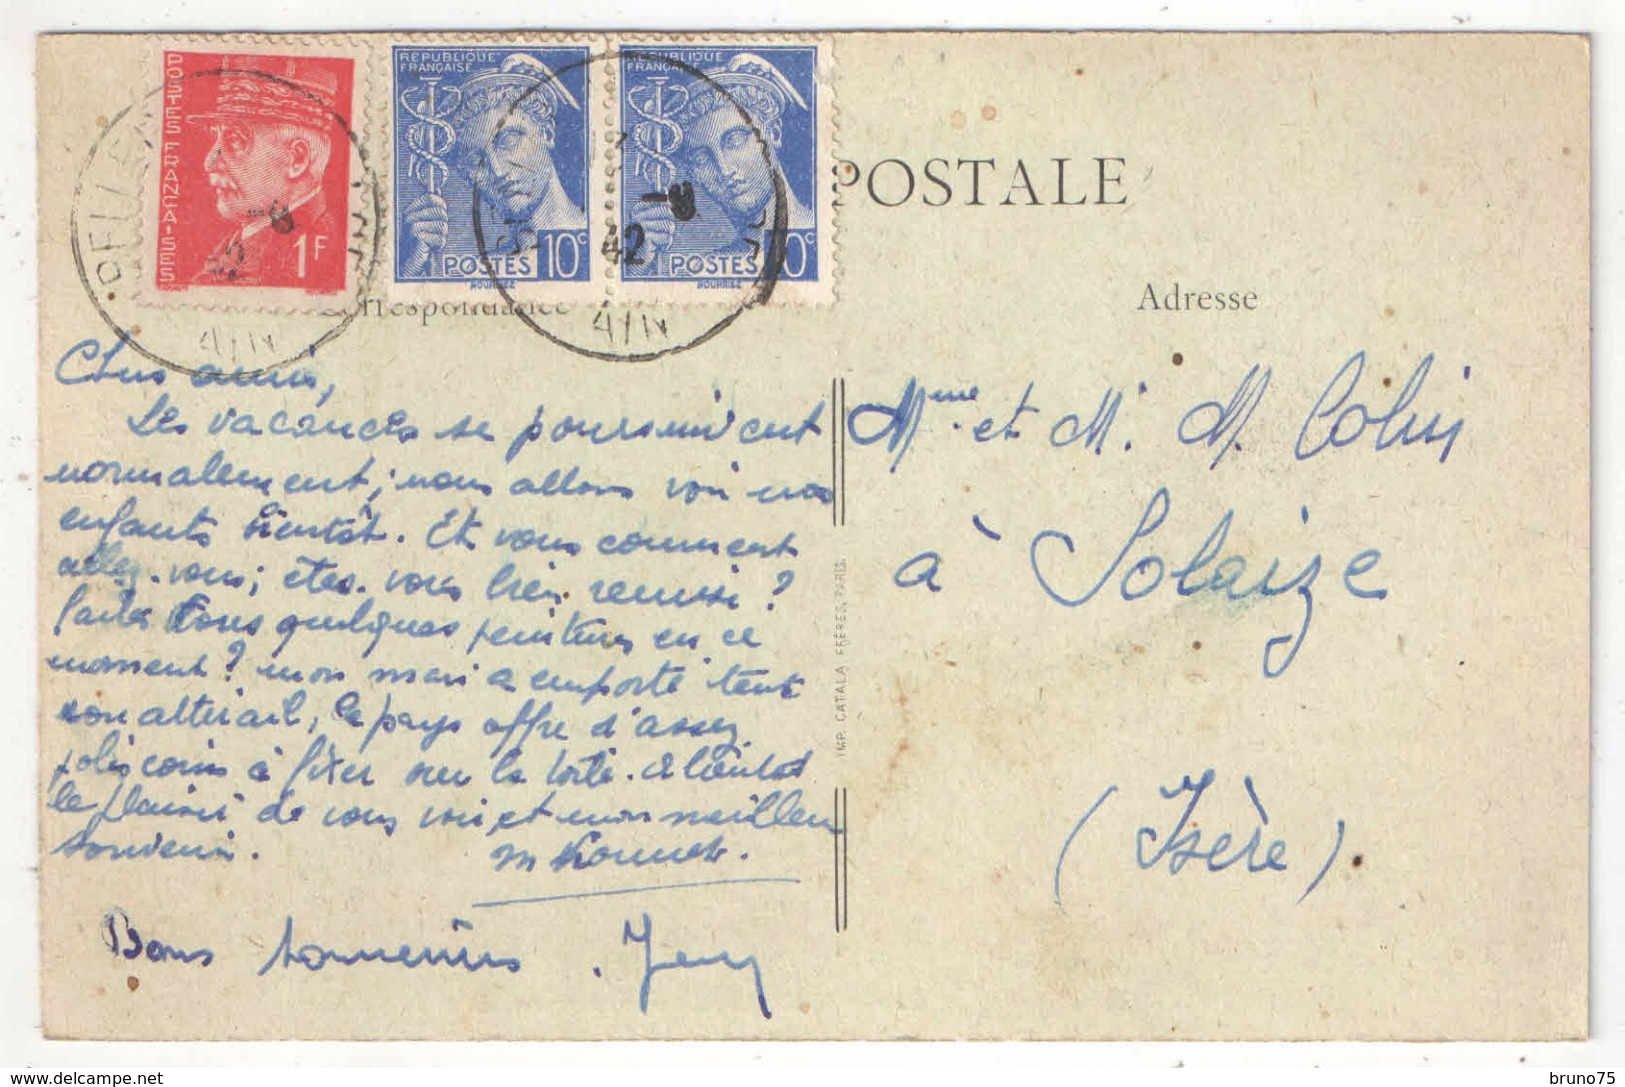 POSTES FRANÇAISES
1F
RÉPUBLIQUE
FRANÇAISE
10c
POSTES
RÉPUBLIQUE
FRANÇAISE
10c
POSTES
-8
42
-8
42
POSTALE
Correspondance
Adresse
Chers amis,
Les vacances se poursuivent
normalement; nous allons voir nos
enfants bientôt. Et vous comment
allez-vous; êtes-vous bien remise?
Faites vous quelques peintures en ce
moment? mon mari a emporté tout
son attirail, le pays offre d'assez
jolis coins à fixer sur la toile. A bientôt
le plaisir de vous voir et mon meilleur
souvenir.
Bons souvenirs.
Mme et M. M. Colin
à Solaize
(Isère)
IMP. CATALA FRÈRES, PARIS.
bruno75